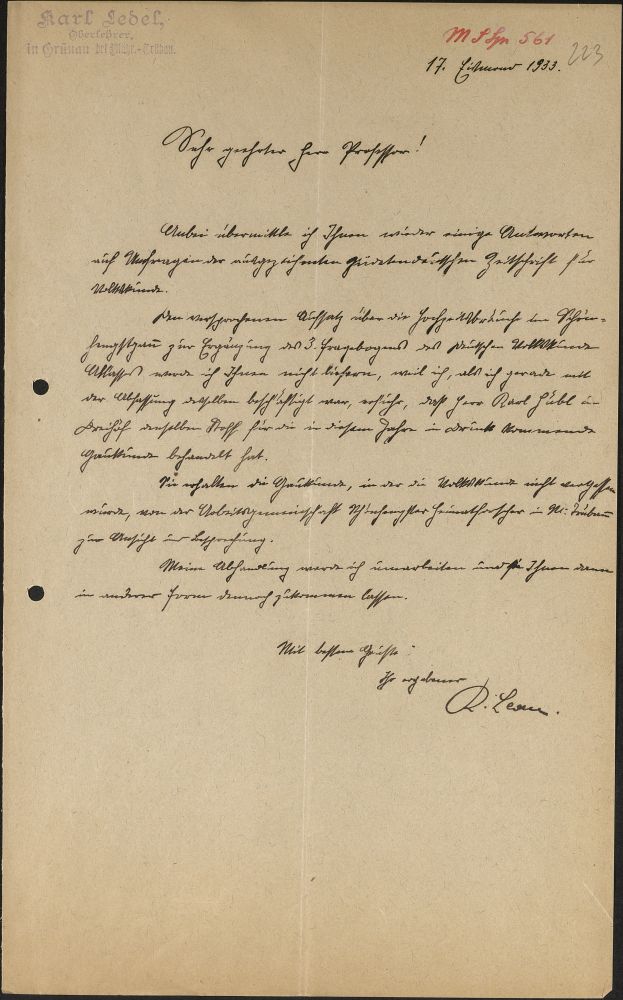 Karl Ledel,
Oberlehrer,
in Grünau bei Mähr.-Trübau.
M S Spr 561
223
17. Eismond 1933.
Sehr geehrter Herr Professor!
Anbei übermittle ich Ihnen wieder einige Antworten
auf Umfragen der ausgezeichneten sudetendeutschen Zeitschrift für
Volkskunde.
Den versprochenen Aufsatz über die Hochzeitsbräuche im Schön-
hengstgau zur Ergänzung des 3. Fragebogens des deutschen Volkskunde
Atlasses werde ich Ihnen nicht liefern, weil ich, als ich gerade mit
der Abfassung desselben beschäftigt war, erfuhr, daß Herr Karl Hübl in
Dreihöf denselben Stoff für die in diesem Jahre in Druck kommende
Gaukunde behandelt hat.
Sie erhalten die Gaukunde, in der die Volkskunde nicht vergessen
wurde, von der Arbeitsgemeinschaft Schönhengster Heimatforscher in M. Trübau
zur Ansicht und Besprechung.
Meine Abhandlung werde ich umarbeiten und sie Ihnen dann
in anderer Form dennoch zukommen lassen.
Mit bestem Gruße
Ihr ergebener
K.